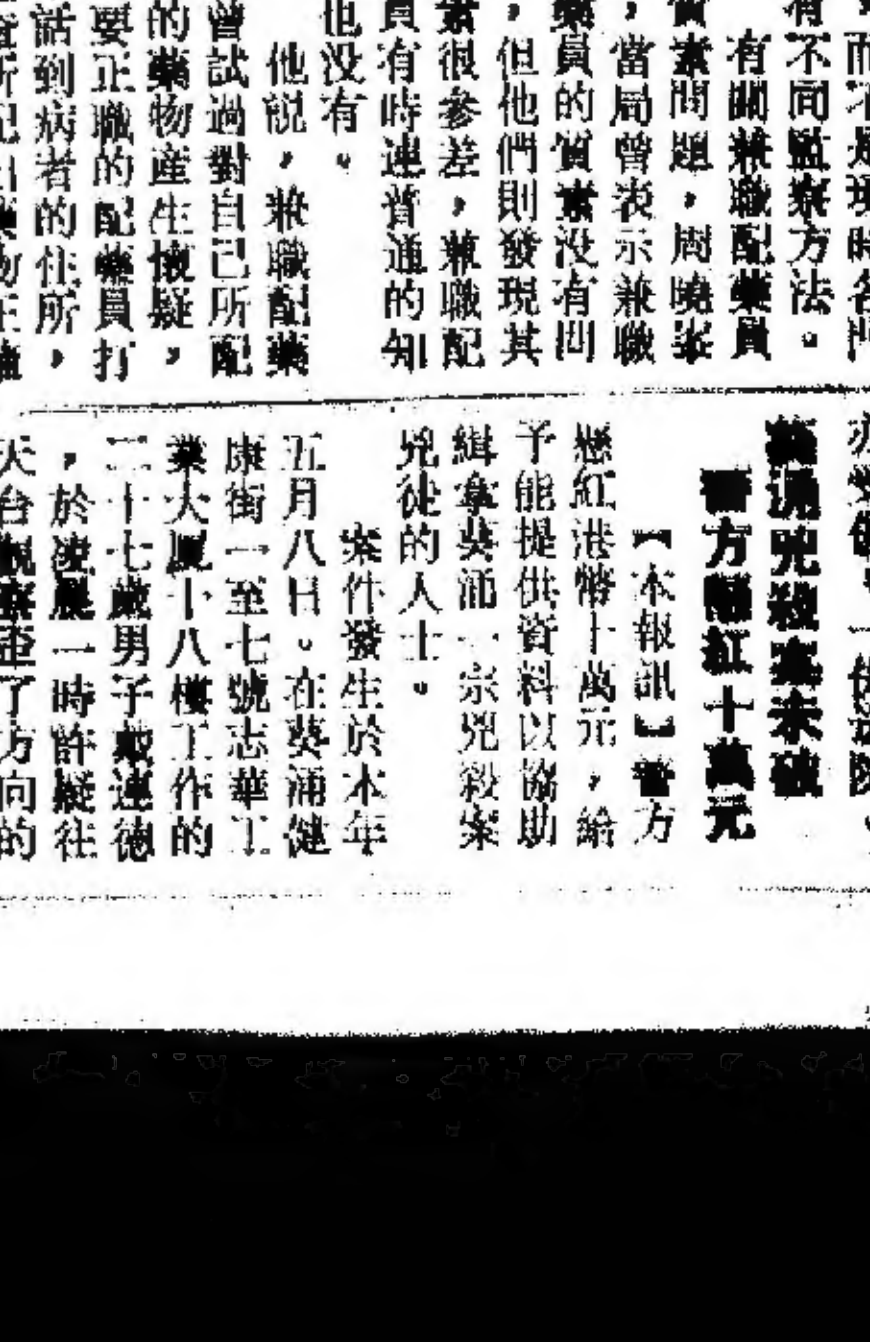 ，而不是現時各門
有不同監察方法。
有關兼職配藥員
質素問題，周曉峯
，當局曾表示兼職
藥員的質素没有問
，但他們則發現其
素很參差，兼職配
員有時連普通的知
也没有。
他說，兼職配藥
曾試過對自己所配
的藥物産生懷疑，
要正職的配藥員打
話到病者的住所，
葵涌兇殺案未破
警方懸紅十萬元
【本報訊】警方
懸紅港幣十萬元，給
予能提供資料以協助
緝拿葵涌一宗兇殺案
兇徒的人士。
案件發生於本年
五月八日。在葵涌健
康街一至七號志華工
業大厦十八樓工作的
二十七歲男子戴連德
，於凌晨一時許疑往
天台觀察歪了方向的